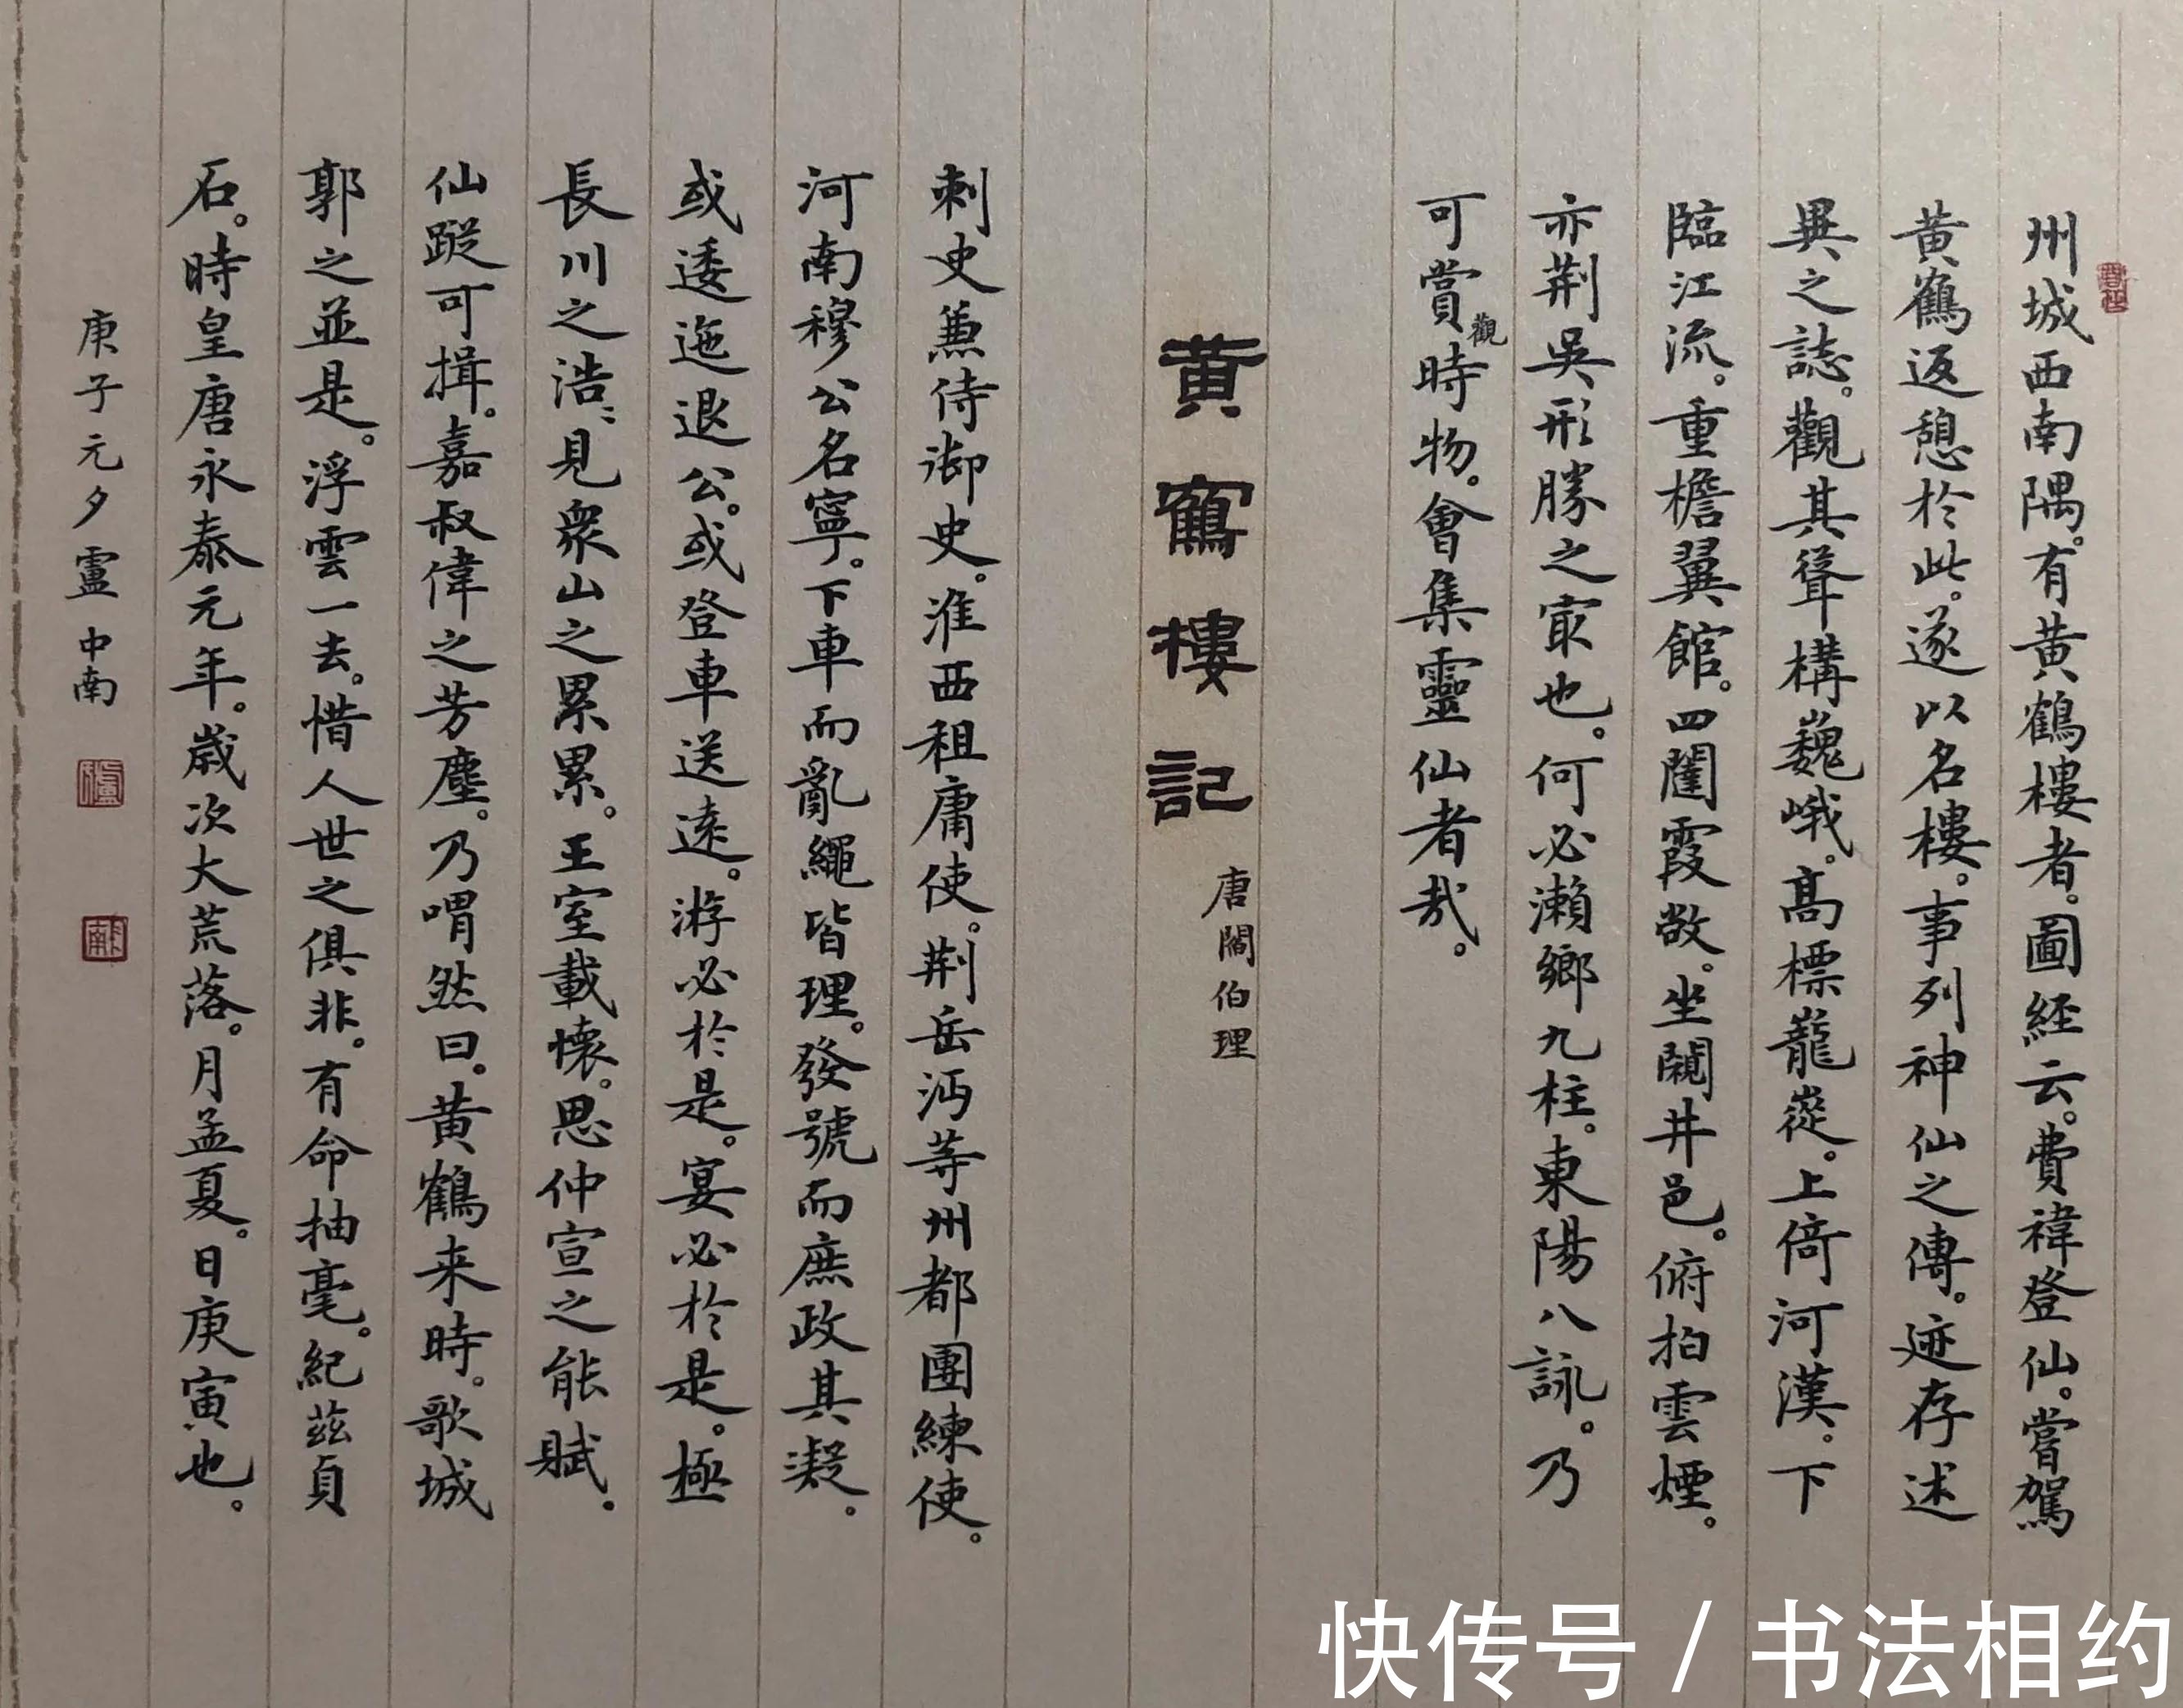 州城西南隅。有黄鶴樓者。圖経云。費禕登仙。嘗駕
黄鶴返憩於此。遂以名樓。事列神仙之傳。迹存述
異之誌。觀其聳構巍峨。髙標巃嵸。上倚河漢。下
臨江流。重檐翼館。四闥霞敞。坐闚井邑。俯拍雲煙。
亦荆吳形勝之冣也。何必瀨鄉九柱。東陽八詠。乃
可賞觀時物。會集靈仙者哉。
黄鶴樓記
唐閻伯理
刺史兼侍御史。淮西租庸使。荆岳沔等州都團練使。
河南穆公名寧。下車而亂繩皆理。發號而庶政其凝。
或逶迤退公。或登車送遠。游必於是。宴必於是。極
長川之浩〻見衆山之累累。王室載懷。思仲宣之能賦。
仙蹤可揖。嘉叔偉之芳塵。乃喟然曰。黄鶴来時。歌城
郭之並是。浮雲一去。惜人世之俱非。有命抽毫。紀茲貞
石。時皇唐永泰元年。歲次大荒落。月孟夏。日庚寅也。
庚子元夕盧中南
快传号 / 书法相约